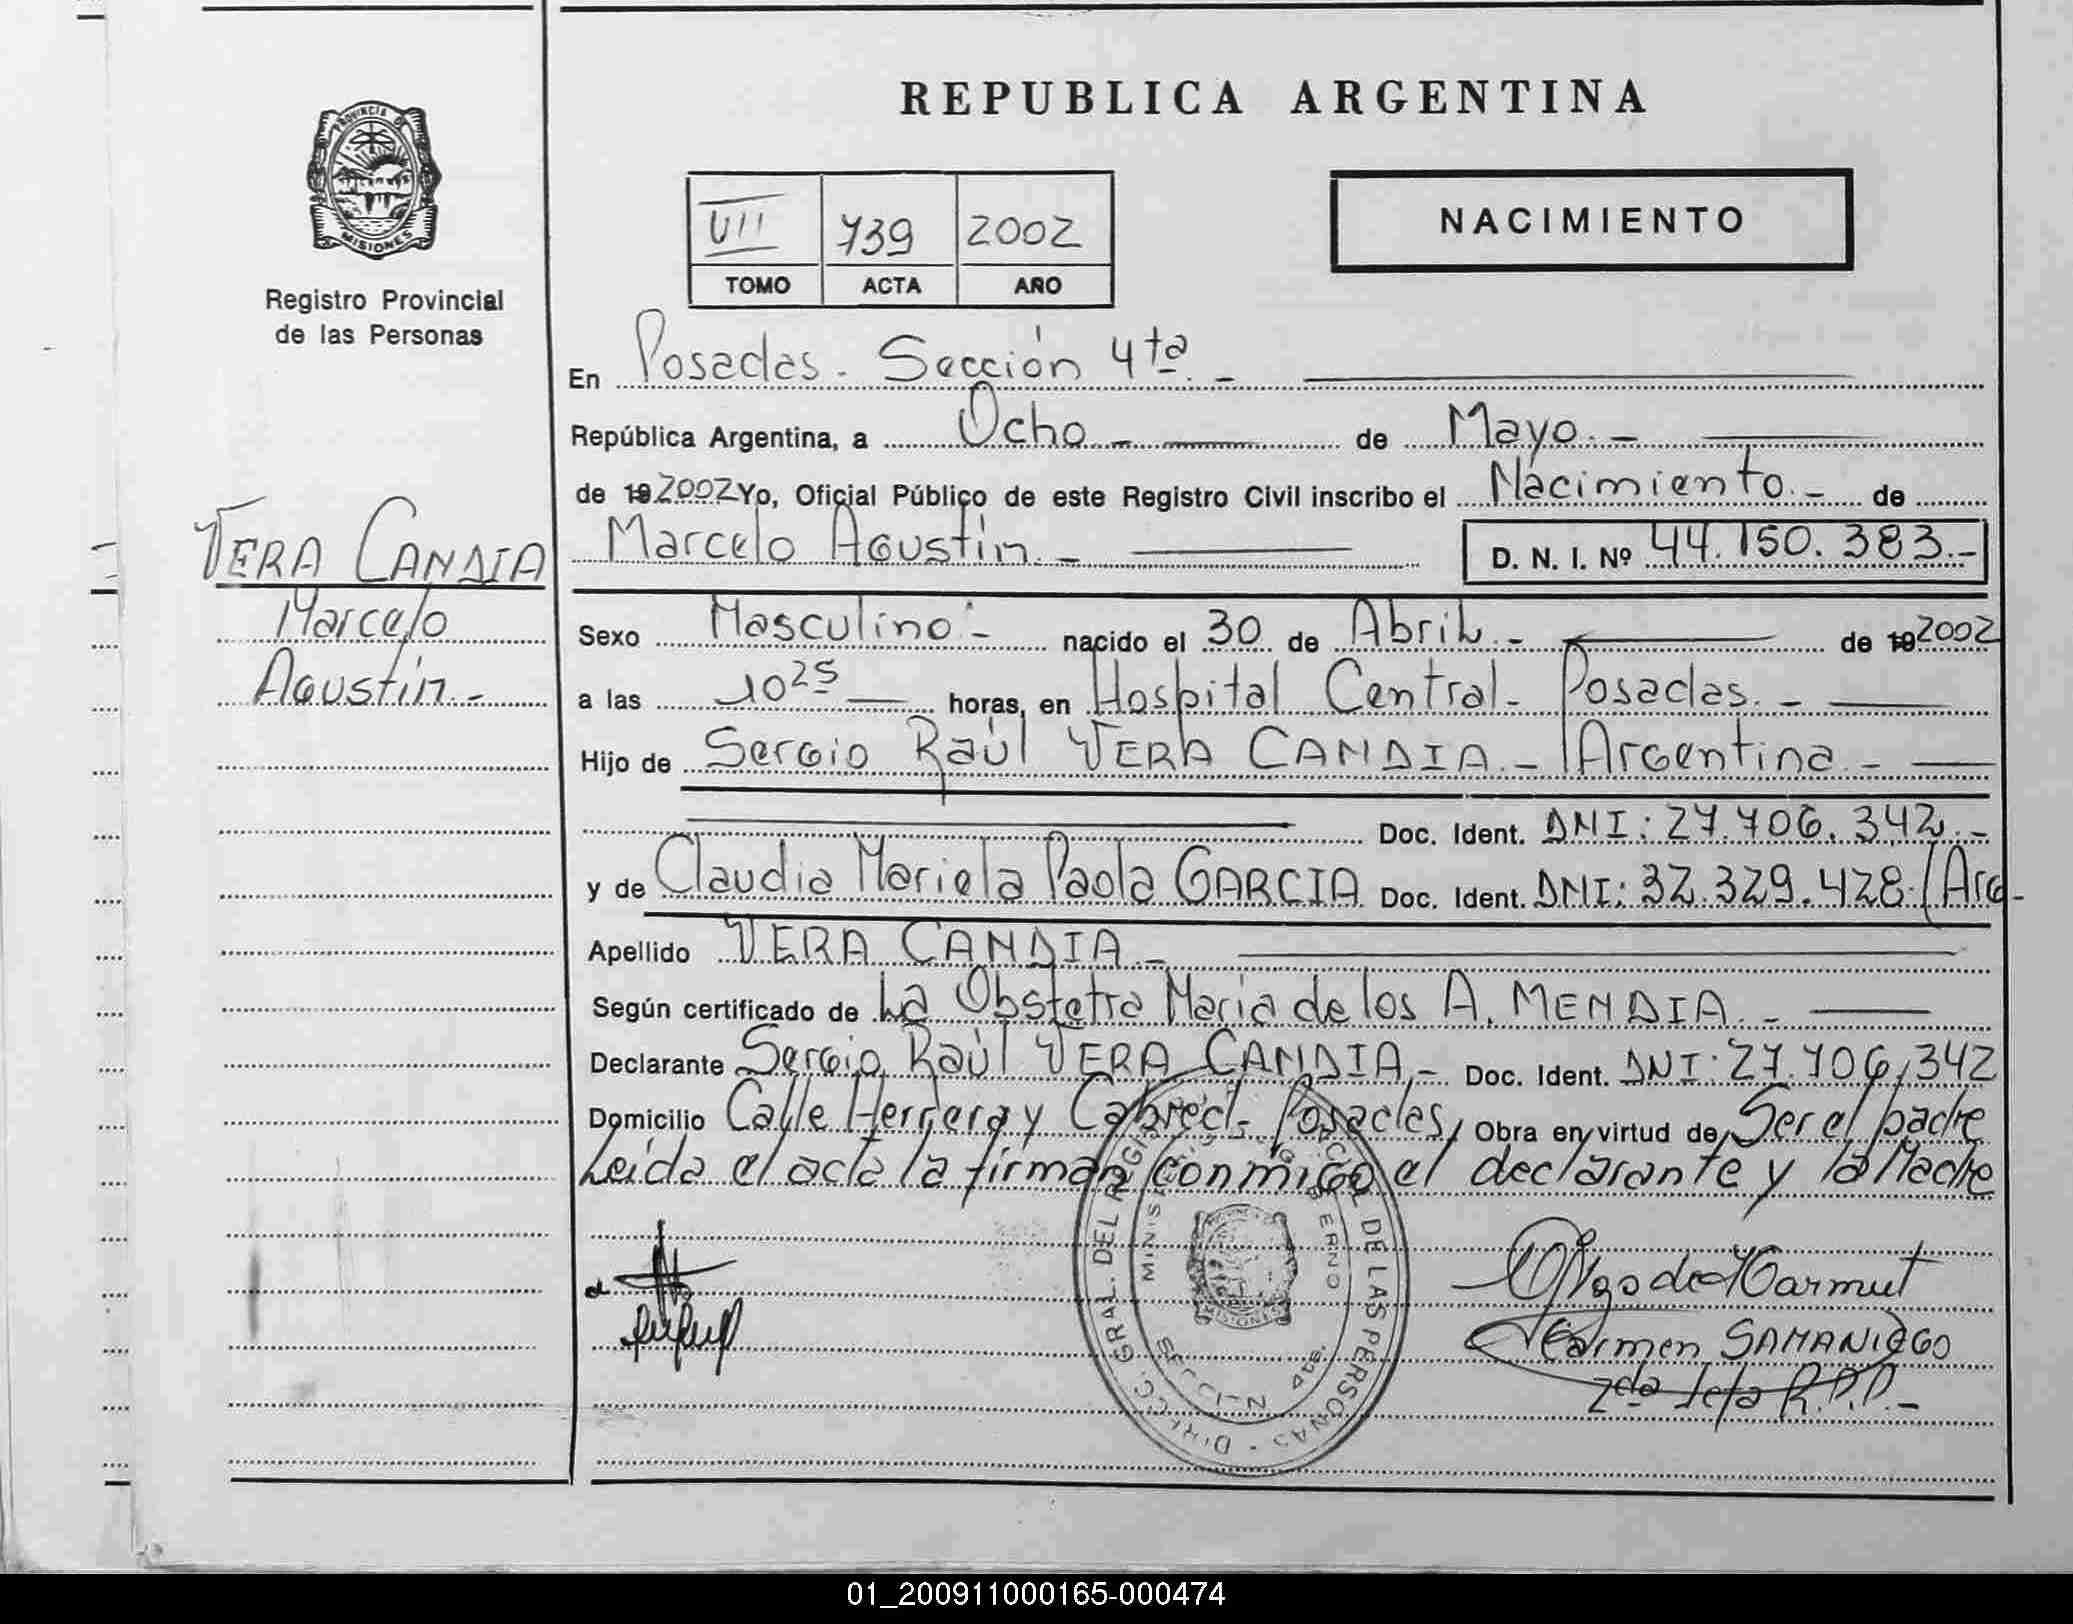 REPUBLICA ARGENTINA
PROVINCIA D
MISIONES
Registro Provincial
de las Personas
VII 739 2002
TOMO ACTA AÑO
NACIMIENTO
En Posadas - Sección 4ta. -
República Argentina, a Ocho - de Mayo. -
de 19 2002 Yo, Oficial Público de este Registro Civil inscribo el Nacimiento. - de
Marcelo Agustín. - D. N. I. Nº 44.150.383.-
VERA CANDIA
Marcelo
Agustín. -
Sexo Masculino. - nacido el 30 de Abril. - de 19 2002
a las 10 25 horas, en Hospital Central - Posadas. -
Hijo de Sergio Raúl VERA CANDIA. - / Argentina. -
Doc. Ident. DNI: 27.706.342. -
y de Claudia Mariela Paola GARCIA Doc. Ident. DNI: 32.329.428 / Arg-
Apellido VERA CANDIA. -
Según certificado de La Obstetra Maria de los A. MENDIA. -
Declarante Sergio Raúl VERA CANDIA, - Doc. Ident. DNI: 27.706,342
Domicilio Calle Herrera y Cabred - Posadas, Obra en virtud de Ser el padre
Leída el acta la firman conmigo el declarante y la Madre
DIRECC. GRAL. DEL REGIS CIAL DE LAS PERSONAS
MINIS BIERNO
MISIONES
4ta.
Carmen SAMANIEGO
2da Jefa R.P.P. -
01_200911000165-000474